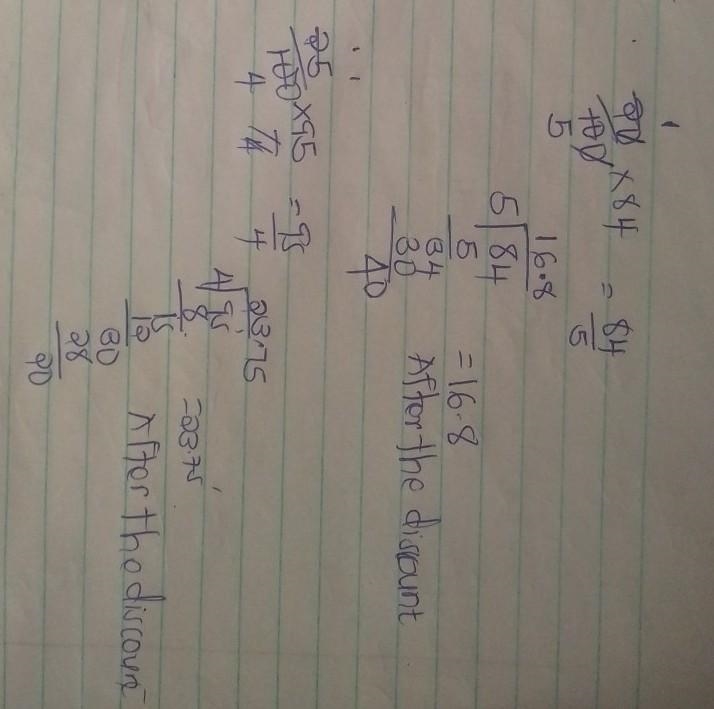 20/100 × 84 = 84/5
5
16.8
5 84
5
34
30
40
= 16.8
After the discount
25/100 × 95 = 95/4
4
23.75
4 95
8
15
12
30
28
20
= 23.75
After the discount